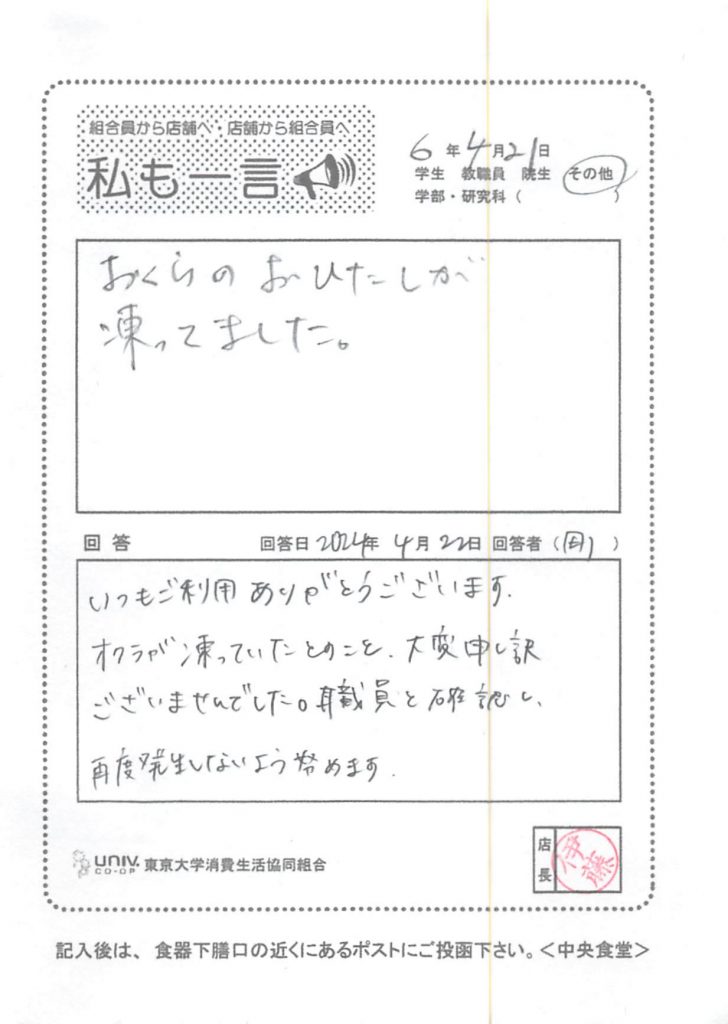 組合員から店舗へ・店舗から組合員へ
私も一言
6年4月21日
学生 教職員 院生 その他
学部・研究科（ ）
おくらのおひたしが
凍ってました。
回答 回答日2024年4月22日 回答者（ ）
いつもご利用ありがとうございます.
オクラが凍っていたとのこと、大変申し訳
ございませんでした。職員と確認し、
再度発生しないよう努めます.
UNIV. CO-OP 東京大学消費生活協同組合
店長 伊藤
記入後は、食器下膳口の近くにあるポストにご投函下さい。＜中央食堂＞